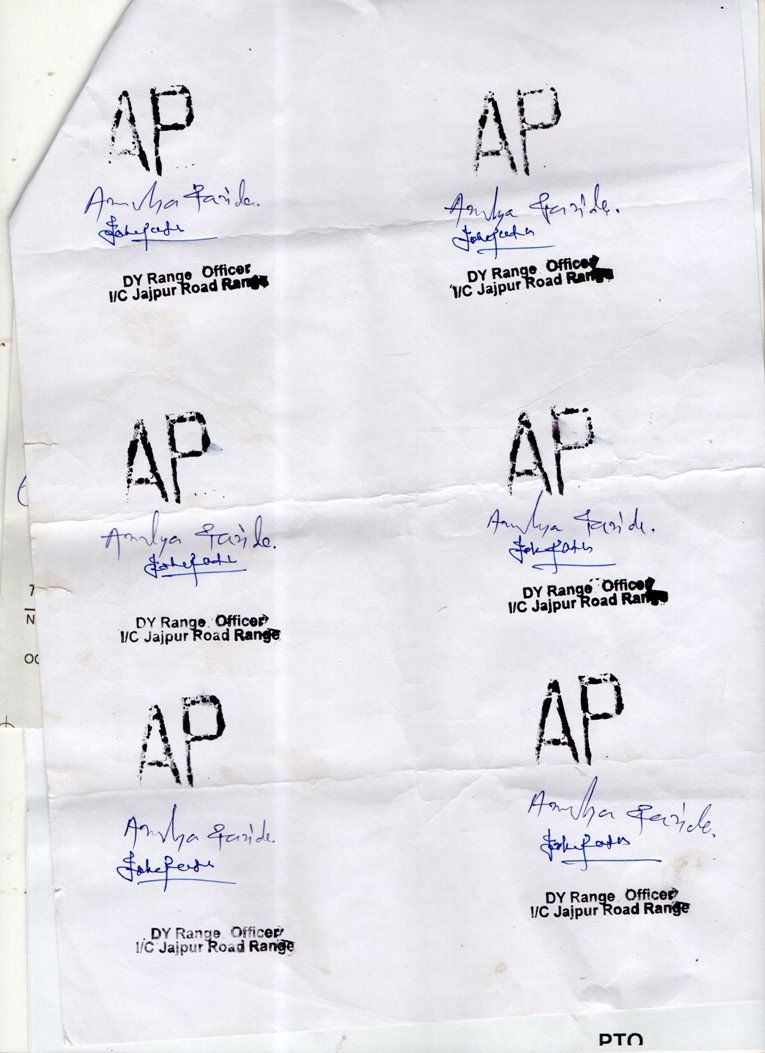 AP
Amulya Parida.
DY Range Officer
I/C Jajpur Road Range
AP
Amulya Parida.
DY Range Officer
I/C Jajpur Road Range
AP
Amulya Parida.
DY Range Officer
I/C Jajpur Road Range
AP
Amulya Parida.
DY Range Officer
I/C Jajpur Road Range
AP
Amulya Parida.
DY Range Officer
I/C Jajpur Road Range
AP
Amulya Parida.
DY Range Officer
I/C Jajpur Road Range
7
N
OC
PTO